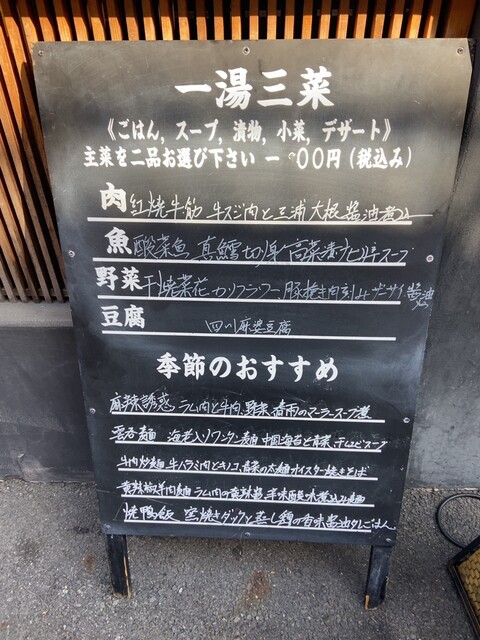 一湯三菜
《ごはん, スープ, 漬物, 小菜, デザート》
主菜を二品お選び下さい 一 00円(税込み)
肉 紅焼牛筋 牛スジ肉と三浦大根醤油煮込
魚 酸菜魚 真鱈切身 高菜漬サビ仔スープ
野菜 干焼菜花 カリフラワー 豚挽き肉刻みザーサイ 醤油
豆腐 四川麻婆豆腐
季節のおすすめ
麻辣誘惑 ラム肉と牛肉、野菜、春雨のマーラースープ煮
雲呑麺 海老入りワンタン麺 中国海苔と青菜、
牛肉炒麺 牛ハラミ肉とキノコ、の太麺オイスター焼きそば
羊肉麺 ラム肉の煮込み麺
焼鴨飯 窯焼きダックと蒸し鶏の香味醤油タレごはん